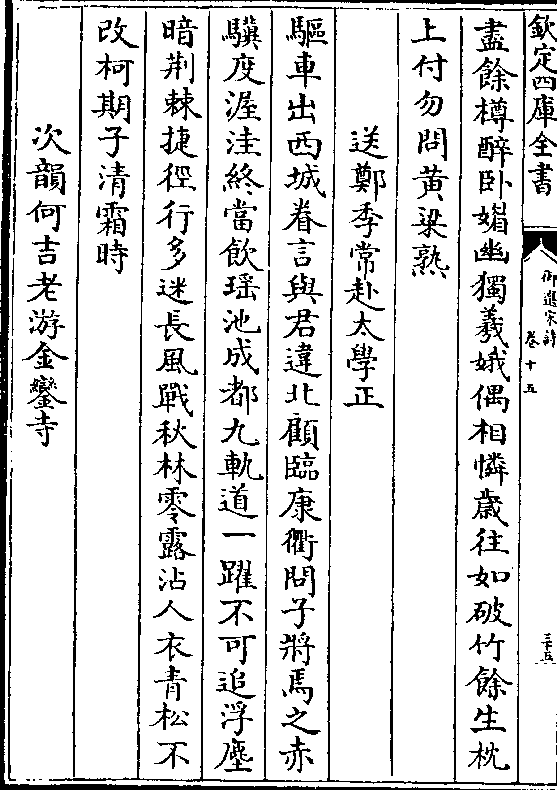 欽定四庫全書
御選宋詩
卷十五
三十五
盡餘樽醉卧媚幽獨羲娥偶相憐歲往如破竹餘生枕
上付勿問黄粱熟
送鄭季常赴太學正
驅車出西城眷言與君違北顧臨康衢問子將焉之赤
驥度渥洼終當飲瑶池成都九軌道一躍不可追浮塵
暗荆棘捷徑行多迷長風戰秋林零露沾人衣青松不
改柯期子清霜時
次韻何吉老游金鑾寺